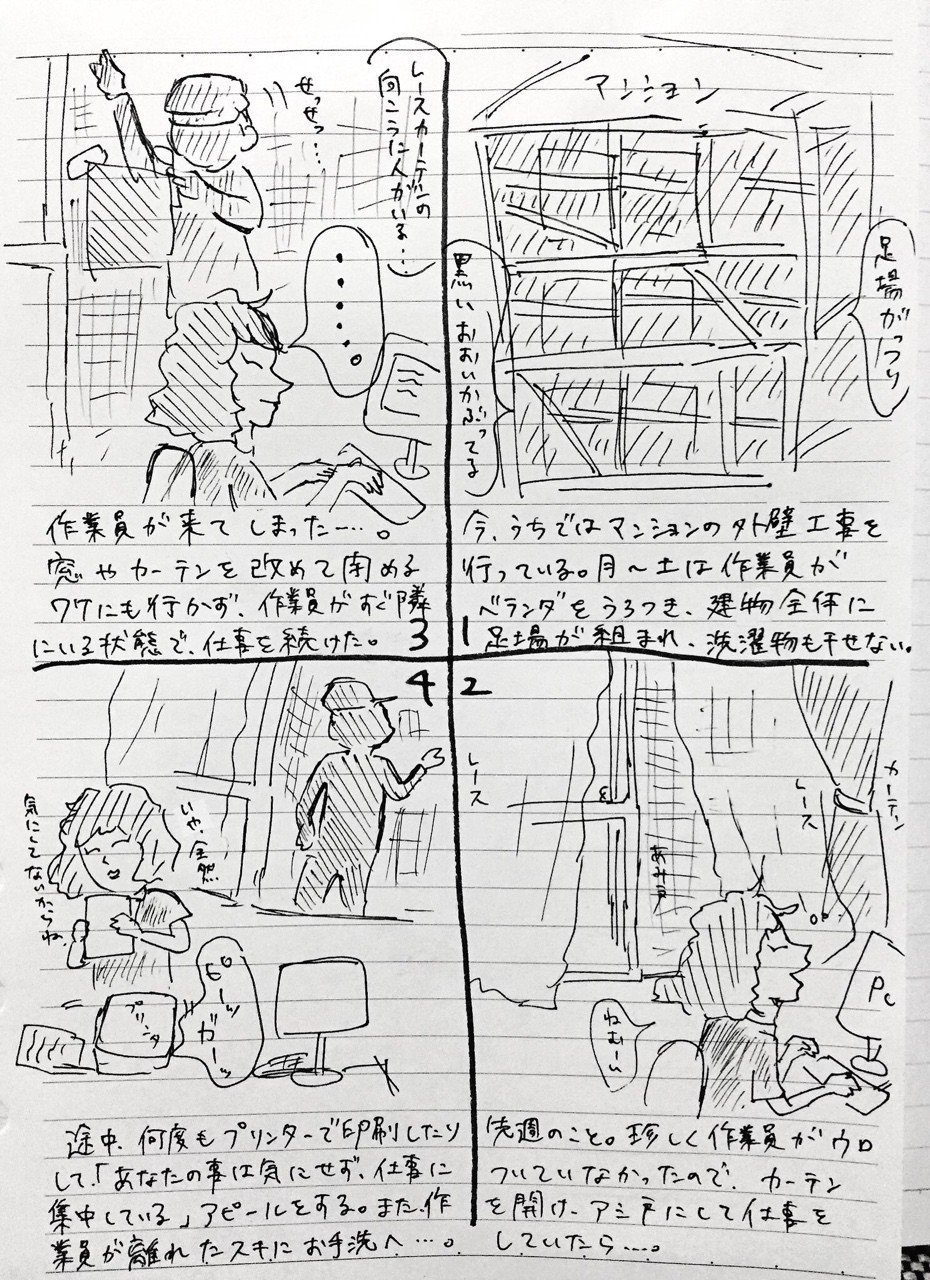 マンション
足場がっつり
黒いおおいかぶってる
今、うちではマンションの外壁工事を
行っている。月〜土は作業員が
ベランダをうろつき、建物全体に
足場が組まれ、洗濯物も干せない。
1
2
カーテン
レース
レース
あみ戸
PC
ねむーい
先週のこと。珍しく作業員がウロ
ついていなかったので、カーテン
を開け、アミ戸にして仕事を
していたら…。
レースカーテンの
向こうに人がいる…
せっせっ…
・・・・・。
作業員が来てしまった…。
窓やカーテンを改めて閉める
ワケにも行かず、作業員がすぐ隣
にいる状態で、仕事を続けた。
3
4
いや、全然
気にしてないからね、
ピーッ
ガーッ
プリンタ
途中、何度もプリンターで印刷したり
して、「あなたの事は気にせず、仕事に
集中している」アピールをする。また、作
業員が離れたスキにお手洗へ…。